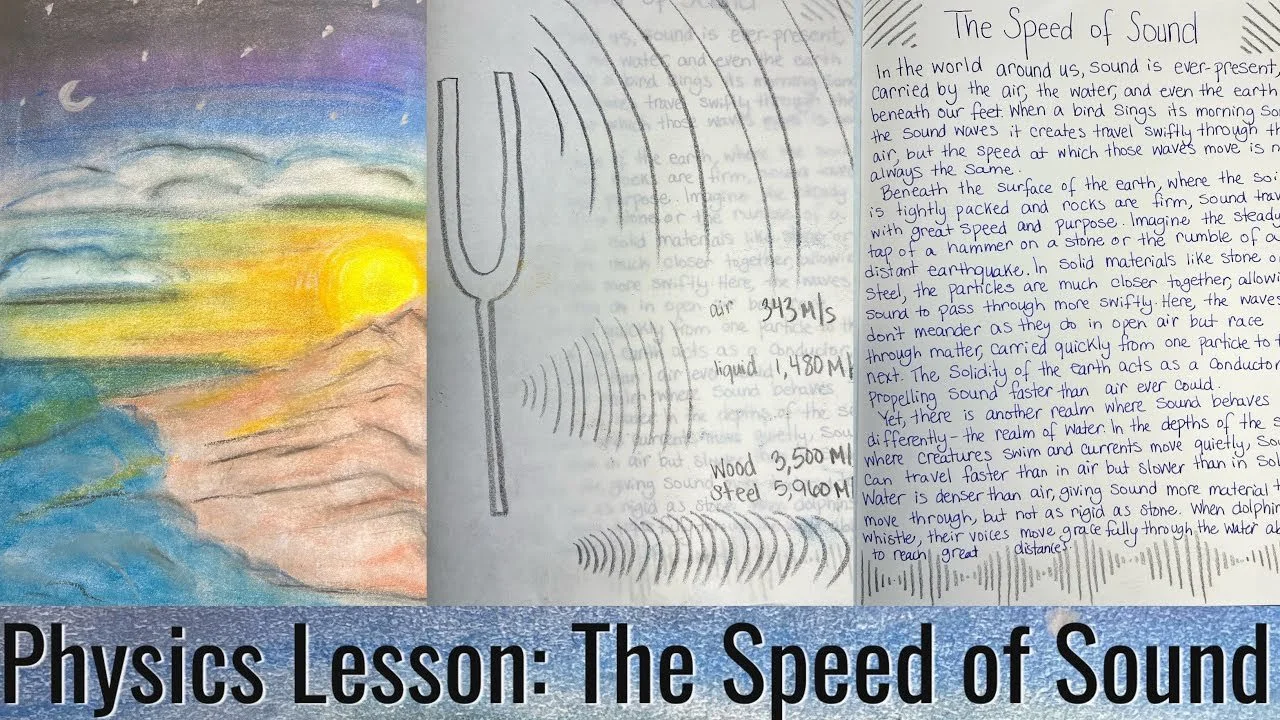 air 343 M/s
liquid 1,480 M/
wood 3,500 M/
steel 5,960 M/
The Speed of Sound
In the world around us, sound is ever-present,
carried by the air, the water, and even the earth
beneath our feet. When a bind sings its morning So
the sound waves it creates travel swiftly through th
air, but the speed at which those waves move is n
always the same.
Beneath the surface of the earth, where the soi
is tightly packed and rocks are firm, sound trav
with great speed and purpose. Imagine the stead
tap of a hammer on a stone or the rumble of a
distant earthquake. In solid materials like stone o
steel, the particles are much closer together, allow
sound to pass through more swiftly. Here, the waves
don't meander as they do in open air but race
through matter, carried quickly from one particle to t
next. The solidity of the earth acts as a conductor
propelling sound faster than air ever could.
Yet, there is another realm where sound behaves
differently- the realm of water. In the depths of the s
where creatures swim and currents move quietly, so
can travel faster than in air but slower than in sol
Water is denser than air, giving sound more material t
move through, but not as rigid as stone. When dolphin
whistle, their voices move gracefully through the water a
to reach great distances
Physics Lesson: The Speed of Sound